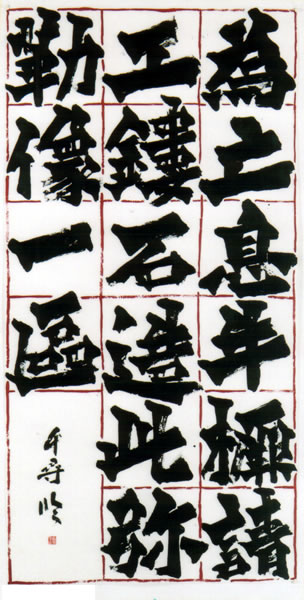 為亡息牛橛請
工鏤石造此弥
勒像一區
千尋臨